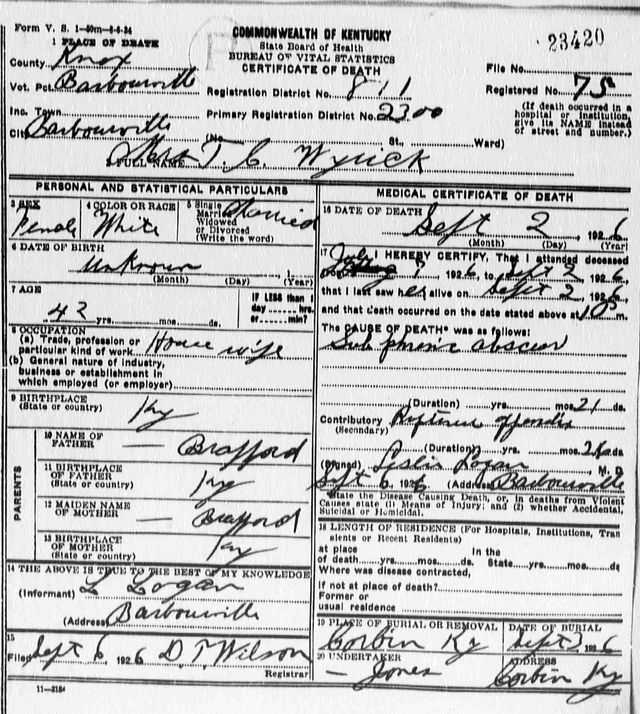 Form V. S. 1-50m-8-6-24
COMMONWEALTH OF KENTUCKY
State Board of Health
BUREAU OF VITAL STATISTICS
CERTIFICATE OF DEATH
23420
1 PLACE OF DEATH
County Knox
File No.
Vot. Pct. Barbourville
Registration District No. 811
Registered No. 75
Inc. Town
Primary Registration District No. 2300
(If death occurred in a hospital or institution, give its NAME instead of street and number.)
City Barbourville
(No. St., Ward)
2 FULL NAME Mrs T. C. Wyrick
PERSONAL AND STATISTICAL PARTICULARS
3 SEX Female
4 COLOR OR RACE White
5 Single Married Widowed or Divorced (Write the word) Married
6 DATE OF BIRTH
Unknown 1
(Month) (Day) (Year)
7 AGE
42 yrs. mos. ds.
IF LESS than 1 day hrs. or min?
8 OCCUPATION
(a) Trade, profession or particular kind of work House wife
(b) General nature of industry, business or establishment in which employed (or employer)
9 BIRTHPLACE
(State or country) Ky
PARENTS
10 NAME OF FATHER — Brafford
11 BIRTHPLACE OF FATHER (State or country) Ky
12 MAIDEN NAME OF MOTHER — Brafford
13 BIRTHPLACE OF MOTHER (State or country) Ky
14 THE ABOVE IS TRUE TO THE BEST OF MY KNOWLEDGE
(Informant) L Logan
(Address) Barbourville
15
Filed Sept 6 1926 D. T. Wilson
Registrar
11-3184
MEDICAL CERTIFICATE OF DEATH
16 DATE OF DEATH Sept 2, 1926
(Month) (Day) (Year)
17 I HEREBY CERTIFY, That I attended deceased
from July 1926, to Sept 2, 1926,
that I last saw her alive on Sept 2, 1926,
and that death occurred on the date stated above at m.
The CAUSE OF DEATH* was as follows:
Sub phrenic abscess
(Duration) yrs. mos. 21 ds.
Contributory Rupture
(Secondary)
(Duration) yrs. mos. ds.
(Signed) Leslie Logan M. D.
Sept 6, 1926 (Address) Barbourville
*State the Disease Causing Death, or, in deaths from Violent
Causes state (1) Means of Injury; and (2) whether Accidental,
Suicidal or Homicidal.
18 LENGTH OF RESIDENCE (For Hospitals, Institutions, Transients or Recent Residents)
at place of death yrs. mos. ds. In the State yrs. mos. ds.
Where was disease contracted,
If not at place of death?
Former or
usual residence
19 PLACE OF BURIAL OR REMOVAL Corbin Ky
DATE OF BURIAL Sept 3 1926
20 UNDERTAKER — Jones
ADDRESS Corbin Ky